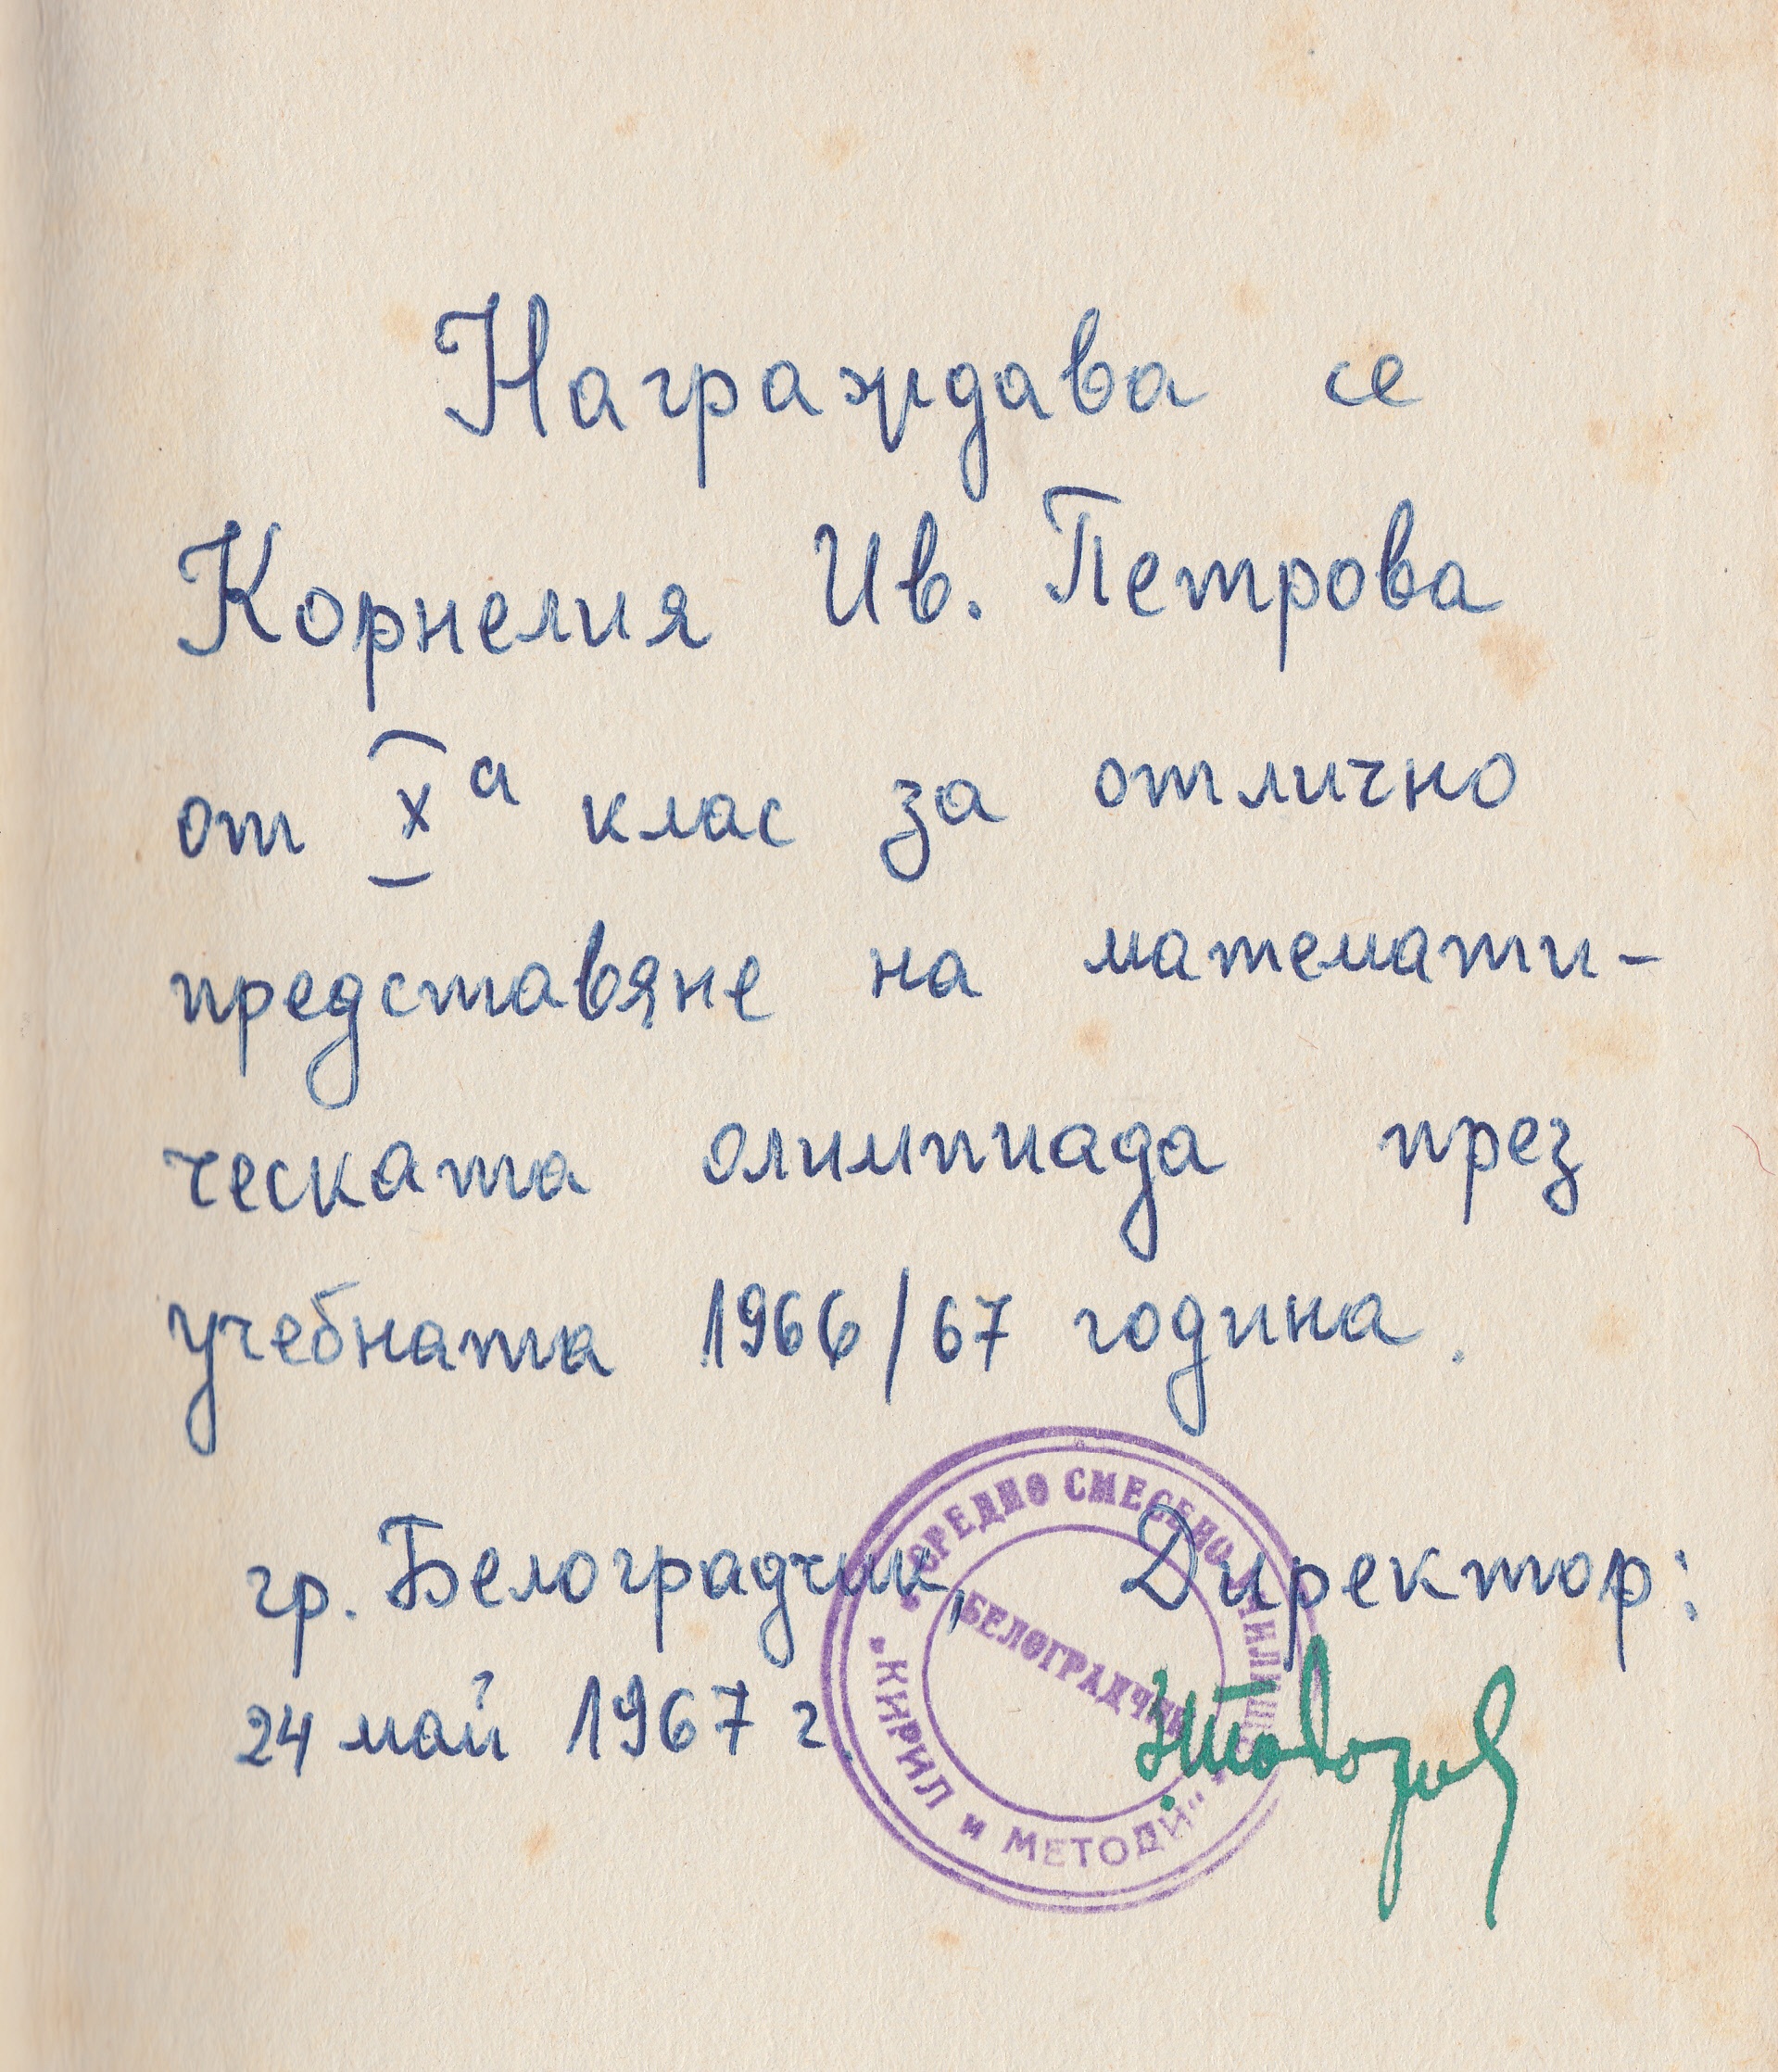 Награждава се
Корнелия Ив. Петрова
от Xа клас за отлично
представяне на математи-
ческата олимпиада през
учебната 1966/67 година.
гр. Белоградчик, Директор:
24 май 1967 г.
СМЕСЕНО
БЕЛОГРАДЧИК
„КИРИЛ и МЕТОДИЙ"